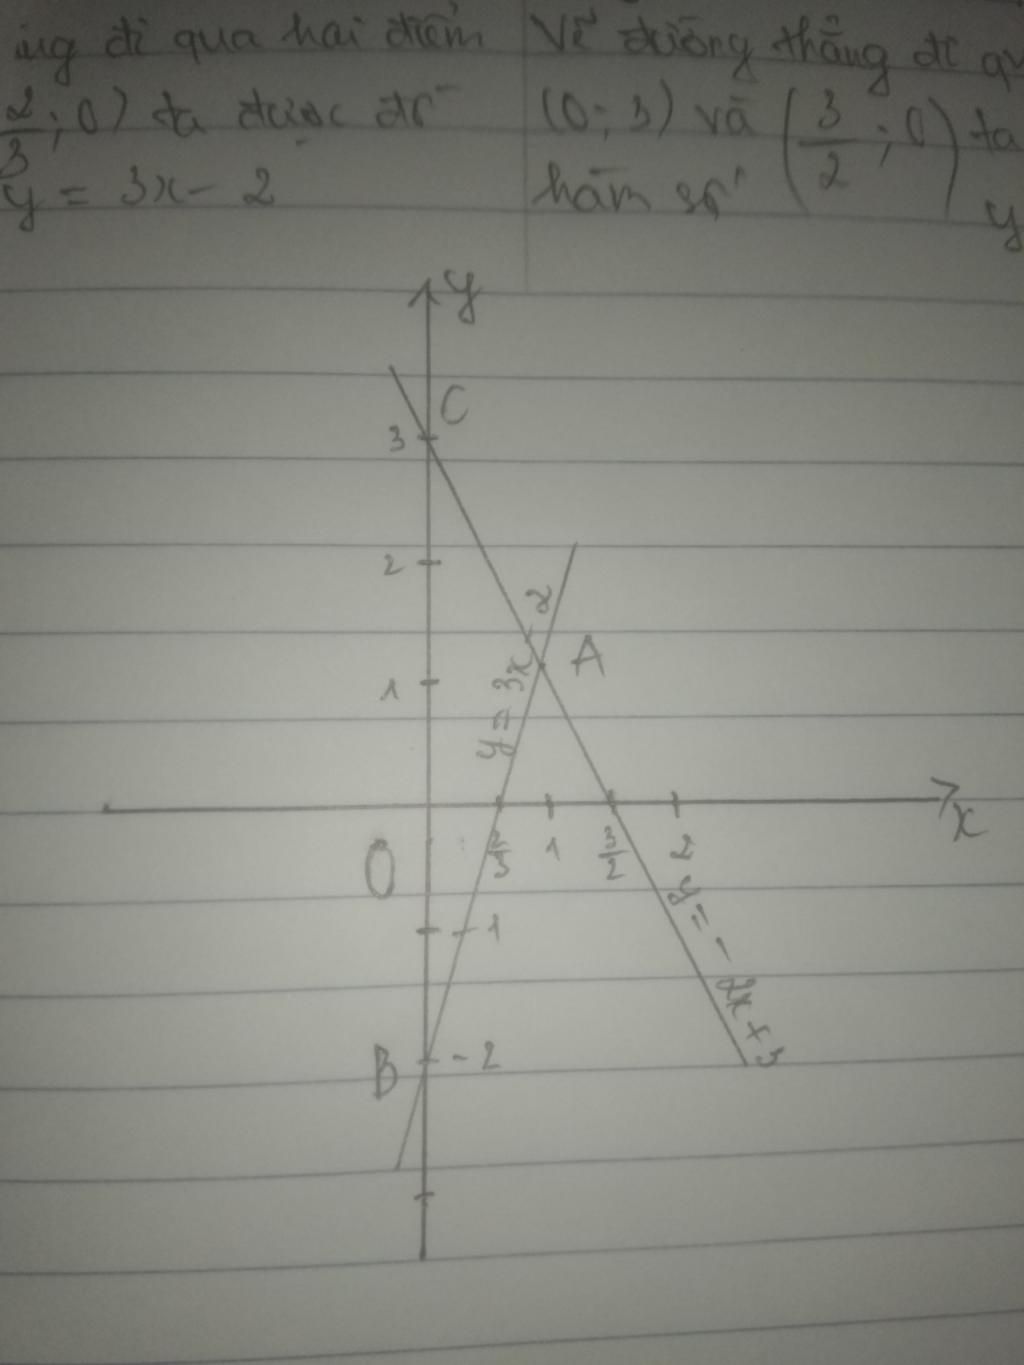 đi qua hai điểm
2/3 ; 0) ta được đt
y = 3x - 2
Vẽ đường thẳng đi qu
(0; 3) và (3/2 ; 0) ta
hàm số y
y
C
3
2
y = 3x - 2
A
1
x
O
2/3 1 3/2 2
y = - 2x + 3
- 1
B - 2